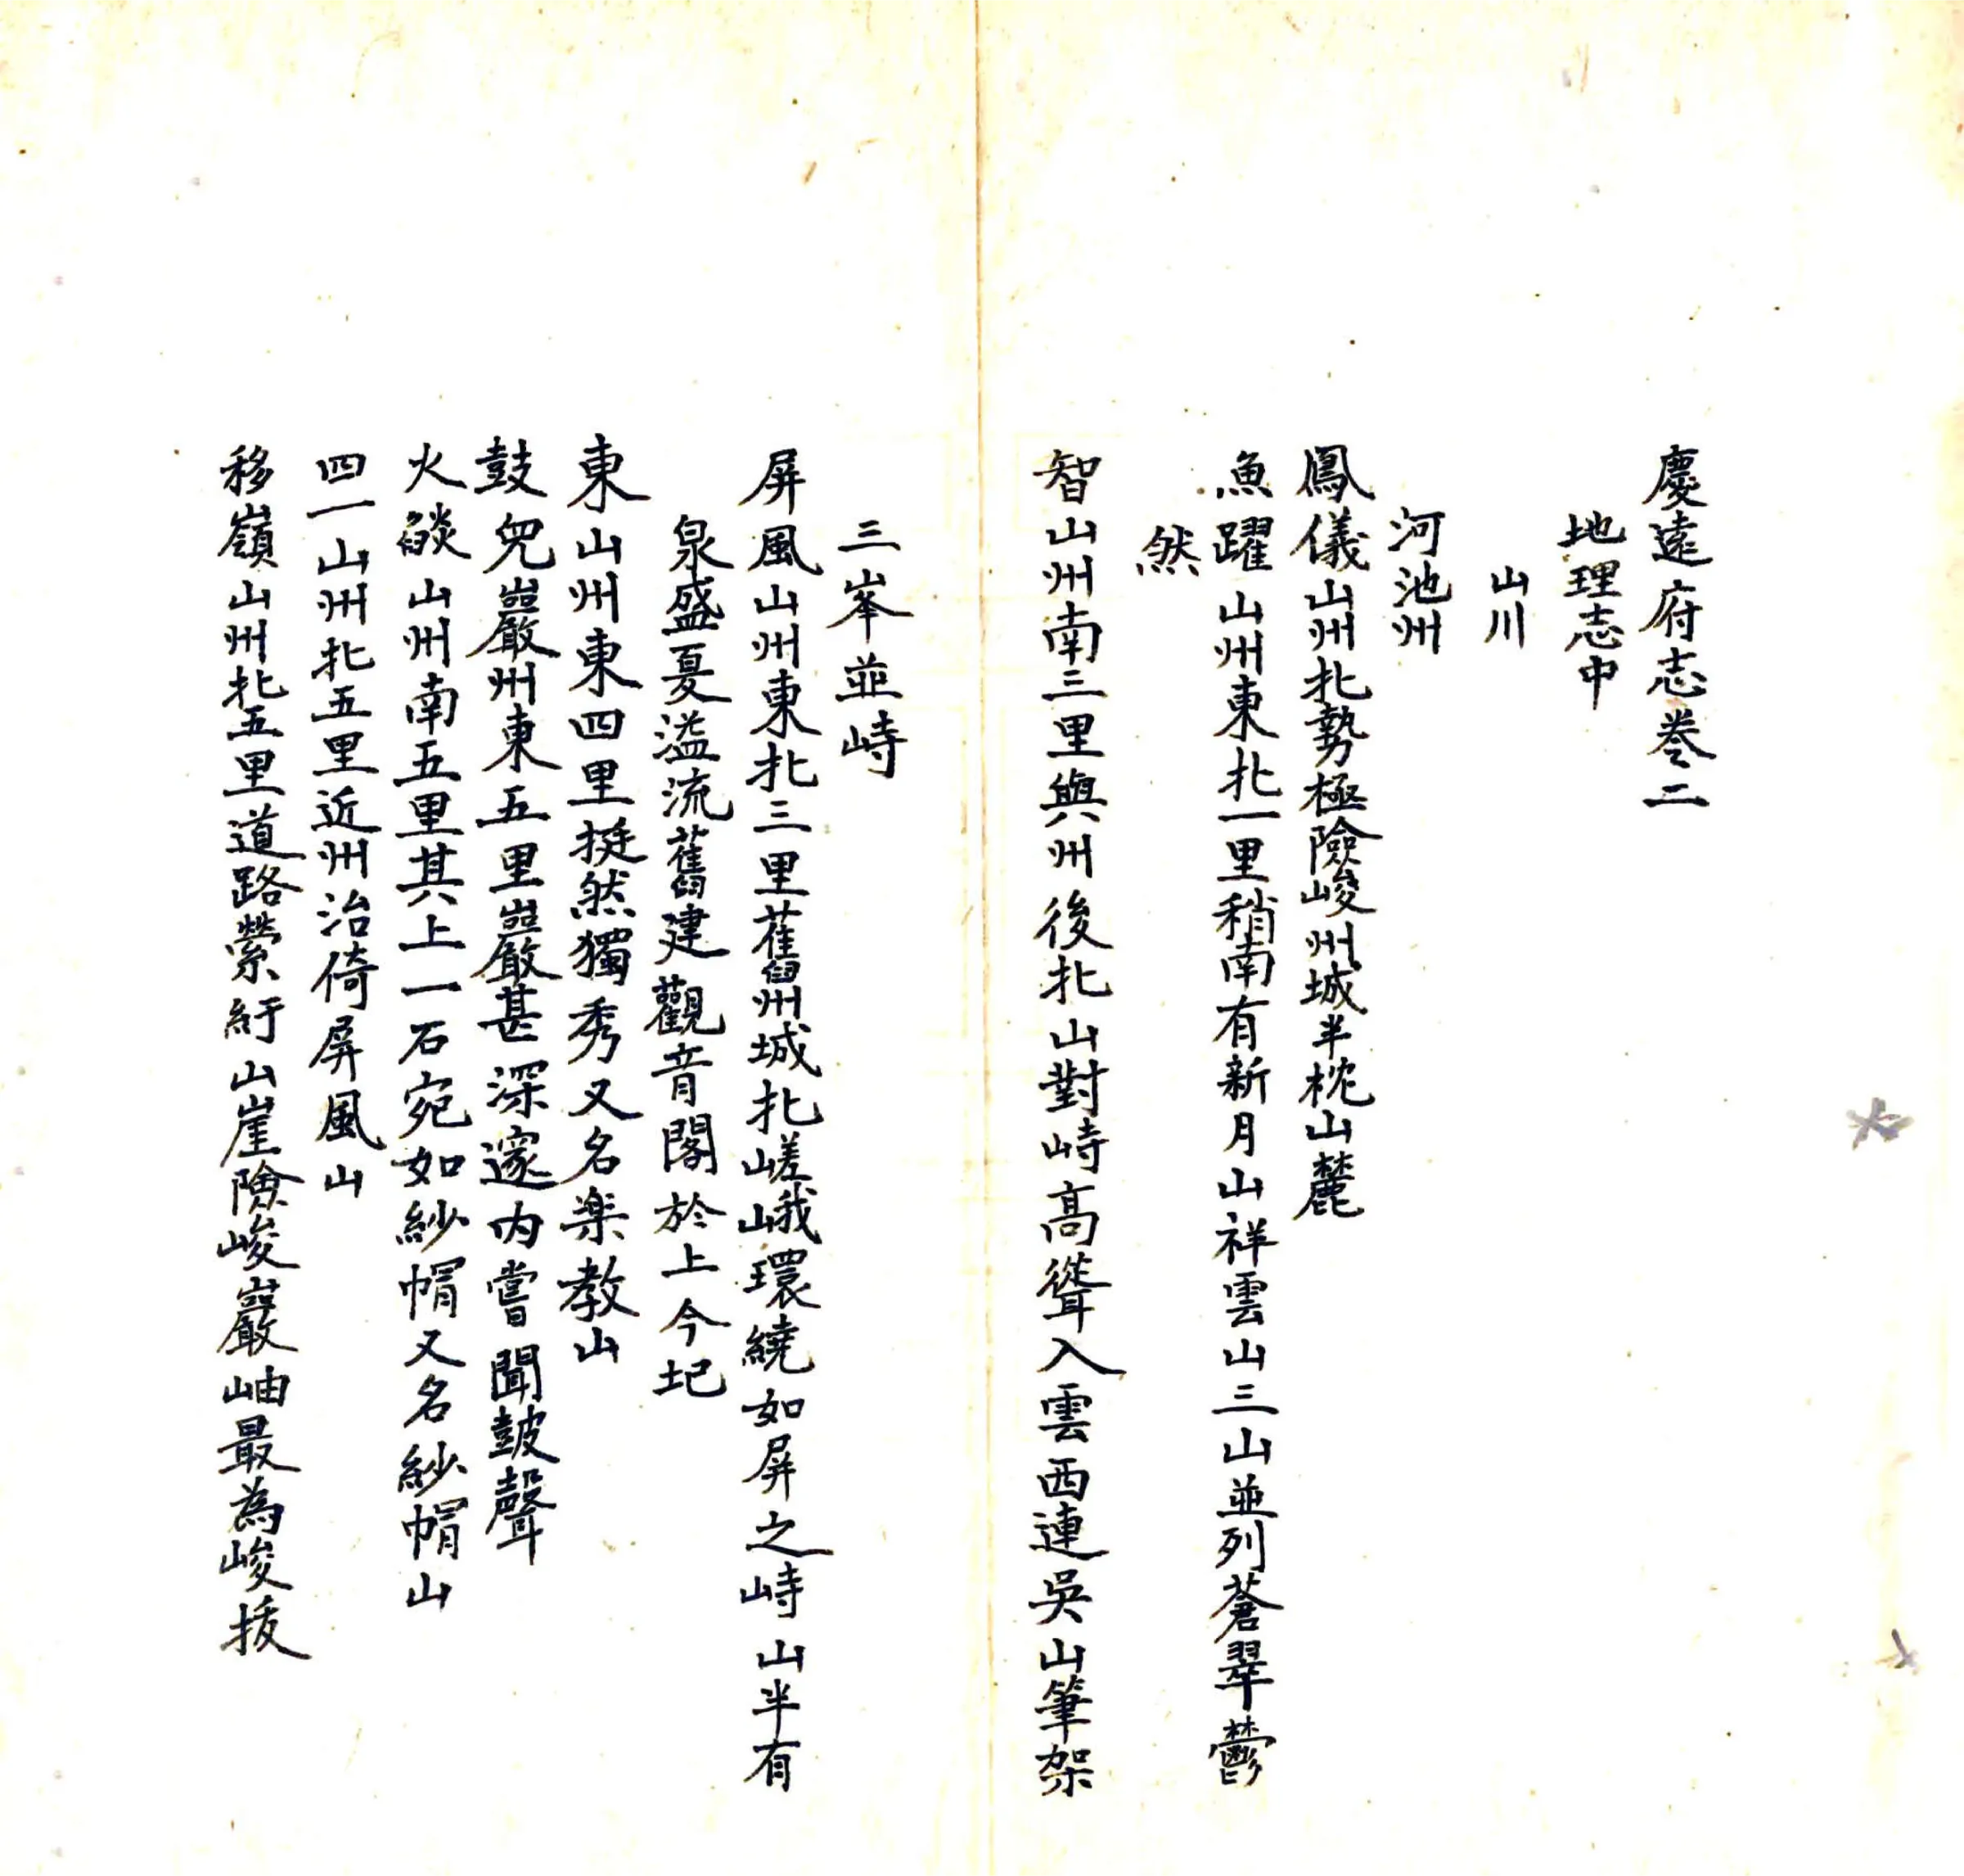 慶遠府志卷二
地理志中
山川
河池州
鳳儀山州北勢極險峻州城半枕山麓
魚躍山州東北一里稍南有新月山祥雲山三山並列蒼翠鬱
然
智山州南三里與州後北山對峙高聳入雲西連吳山筆架
三峯並峙
屏風山州東北三里舊州城北嵯峨環繞如屏之峙山半有
泉盛夏溢流舊建觀音閣於上今圮
東山州東四里挺然獨秀又名楽教山
鼓兜巖州東五里巖甚深邃内嘗聞皷聲
火燄山州南五里其上一石宛如紗帽又名紗帽山
四一山州北五里近州治倚屏風山
移嶺山州北五里道路縈紆山崖險峻巖岫最為峻拔